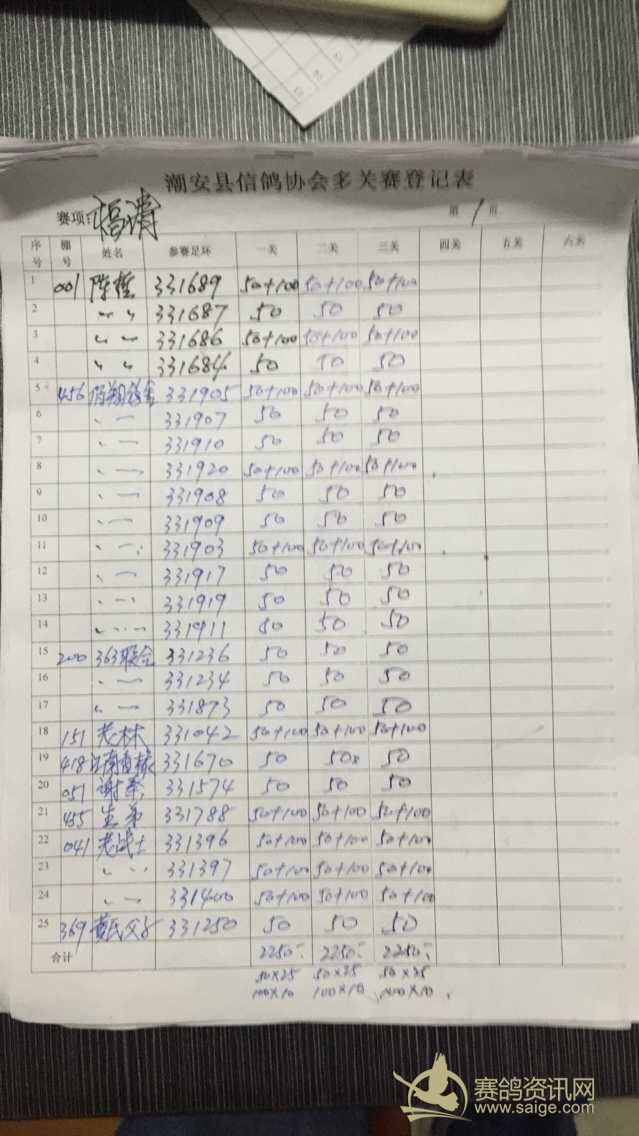 潮安县信鸽协会多关赛登记表
赛项: 福清 第 1 页
序号 棚号 姓名 参赛足环 一关 二关 三关 四关 五关 六关
1 001 陈哲 331689 50+100 50+100 50+100
2 〃 〃 331687 50 50 50
3 〃 〃 331686 50+100 50+100 50+100
4 〃 〃 331684 50 50 50
5 456 331905 50+100 50+100 50+100
6 331907 50 50 50
7 331910 50 50 50
8 331920 50+100 50+100 50+100
9 331908 50 50 50
10 331909 50 50 50
11 331903 50+100 50+100 50+100
12 331917 50 50 50
13 331919 50 50 50
14 331911 50 50 50
15 200 363联合 331236 50 50 50
16 331234 50 50 50
17 331873 50 50 50
18 151 老林 331042 50+100 50+100 50+100
19 418 331670 50 50 50
20 051 331574 50 50 50
21 455 331788 50+100 50+100 50+100
22 041 老战士 331396 50+100 50+100 50+100
23 331397 50+100 50+100 50+100
24 331400 50+100 50+100 50+100
25 369 黄氏父子 331250 50 50 50
合计 2250- 2250- 2250-
50×25 50×25 50×25
100×10 100×10 100×10
赛鸽资讯网
www.saige.com